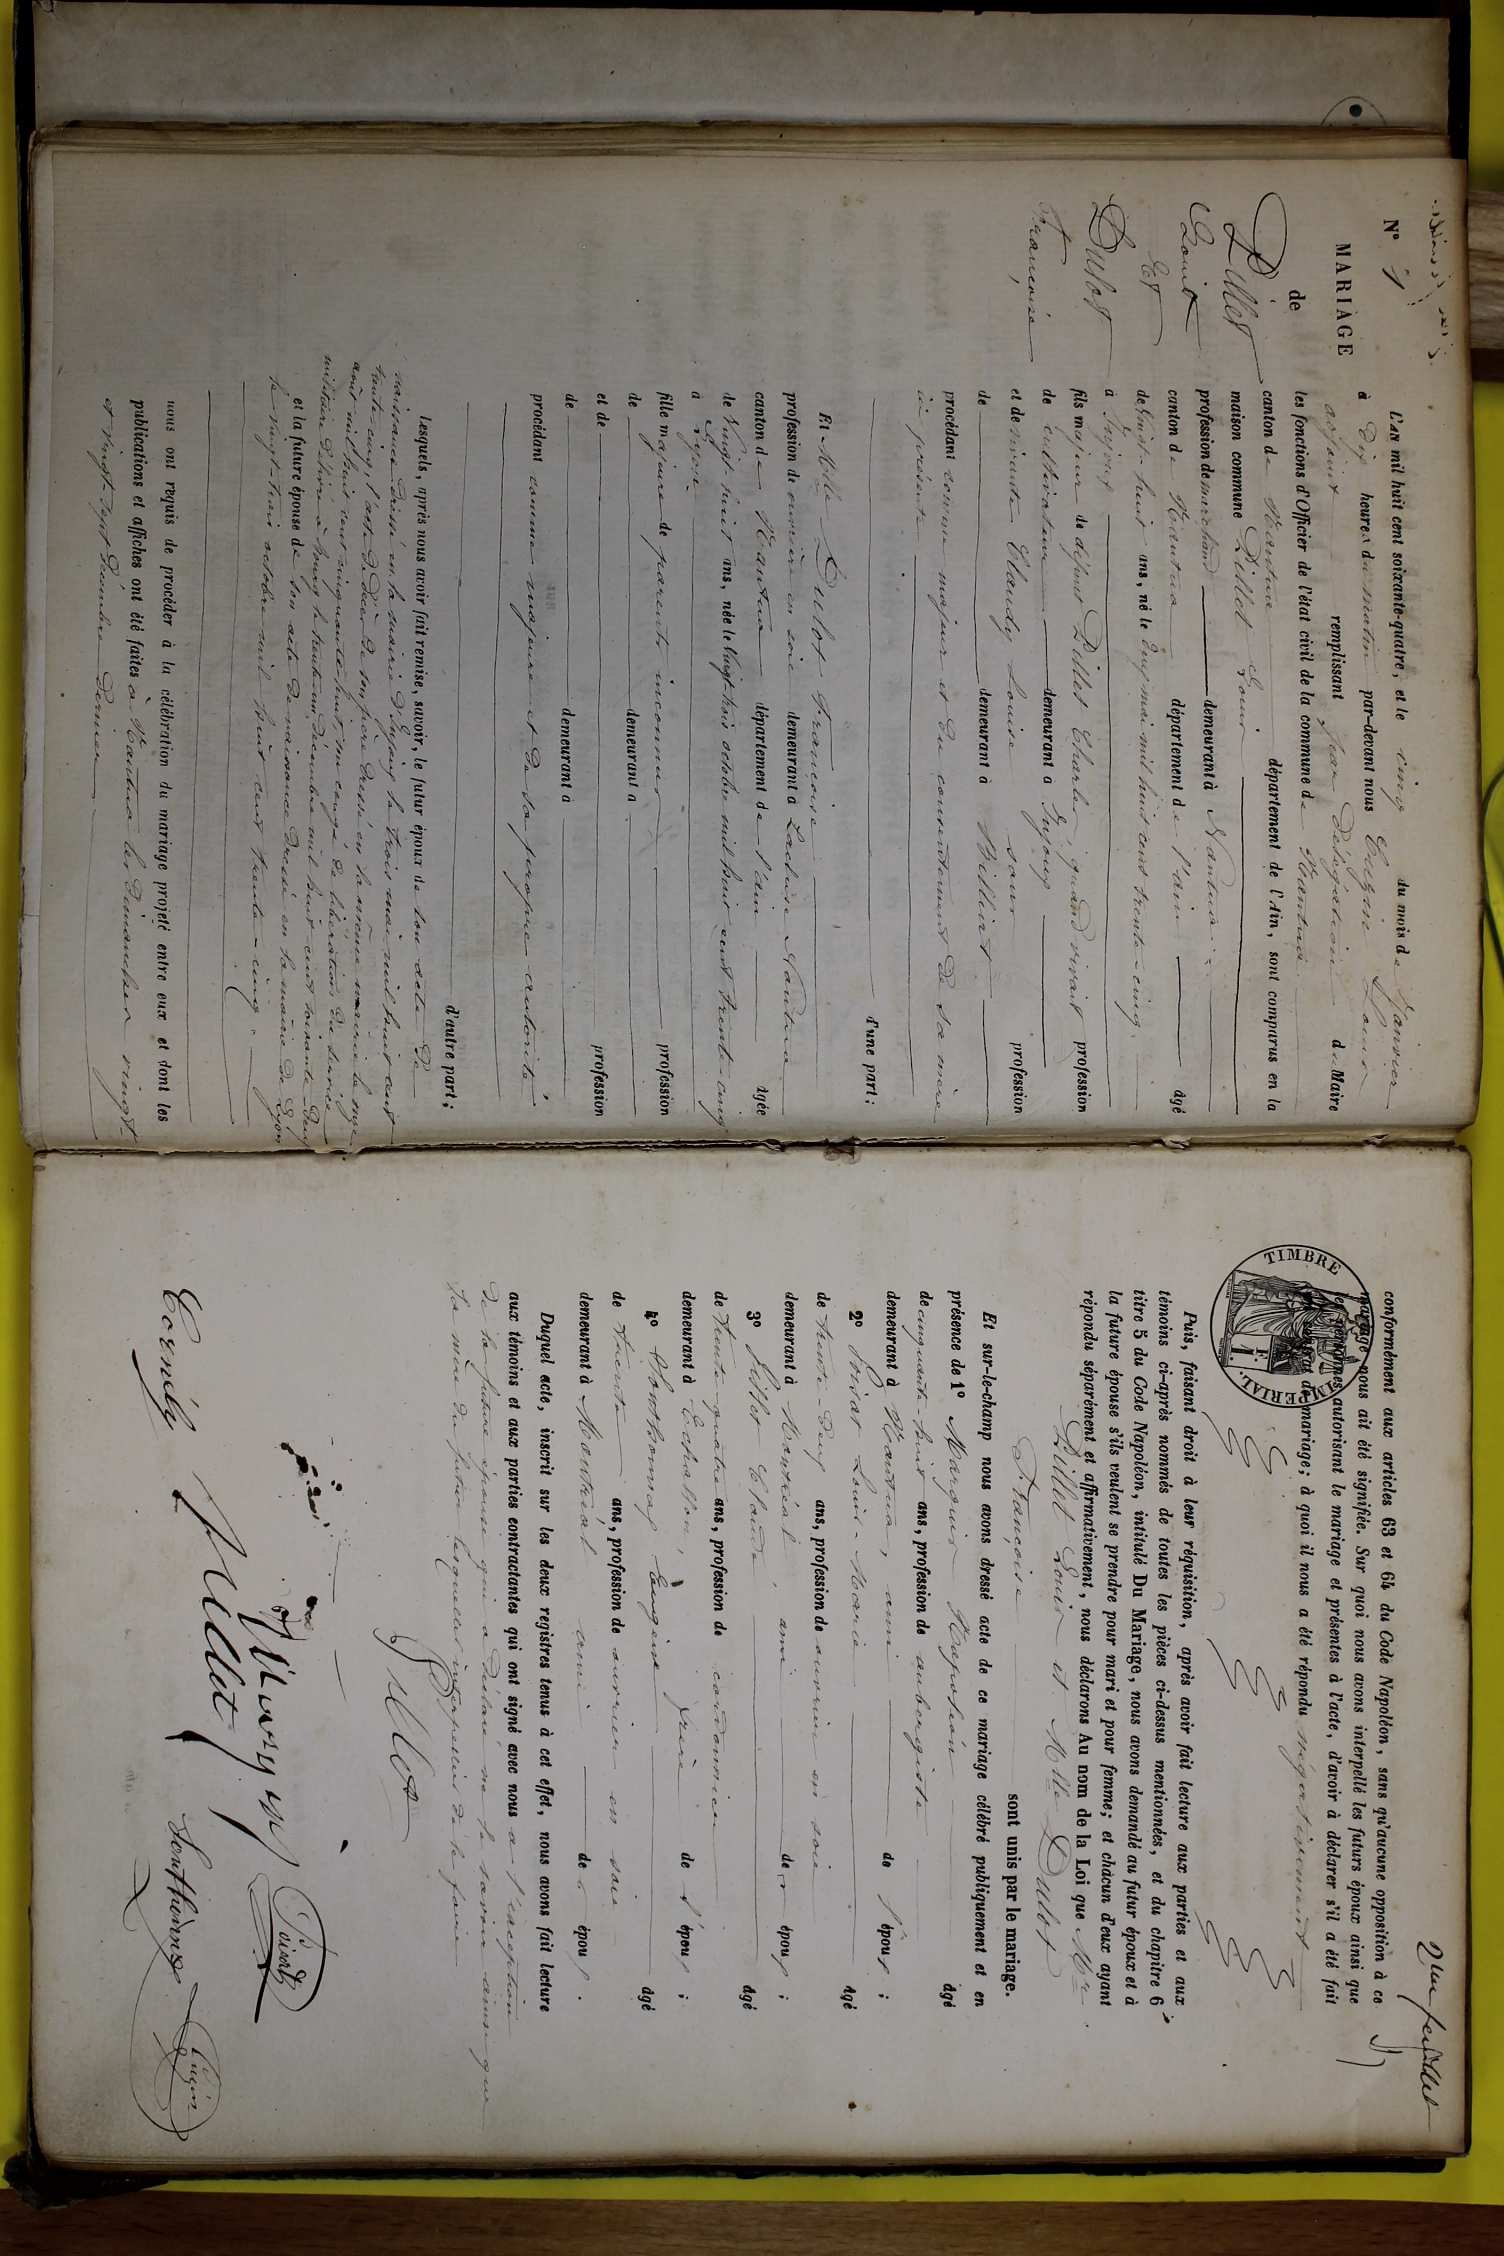 N° 1
MARIAGE
de
Pillet
Louis
Et
Dulot
Françoise
L'an mil huit cent soixante-quatre, et le cinq du mois de Janvier
à dix heures du matin par-devant nous
adjoint remplissant par Délégation du Maire
les fonctions d'Officier de l'état civil de la commune de Nantua
canton de Nantua département de l'Ain, sont comparus en la
maison commune Pillet Louis
profession de marchand demeurant à Nantua
canton de Nantua département de l'ain âgé
de vingt-huit ans, né le deux mai mil huit cent trente-cinq
à Injoux
fils majeur de défunt Pillet Charles, quand vivait profession
de cultivateur demeurant à Injoux
et de vivante Claudy Louise sans profession
de demeurant à Billiat
procédant comme majeur et du consentement de sa mère
ici présente
d'une part ;
Et Mlle Dulot Françoise
profession de ouvrière en soie demeurant à Nantua
canton de Nantua département de l'ain âgée
de vingt huit ans, née le vingt-trois octobre mil huit cent trente-cinq
à Lyon
fille majeure de parents inconnus profession
de demeurant à
et de profession
de demeurant à
procédant comme majeure et de sa propre autorité
d'autre part ;
Lesquels, après nous avoir fait remise, savoir, le futur époux de son acte de
naissance dressé en la mairie d'Injoux le trois mai mil huit cent
trente-cinq, l'acte de décès de son père dressé en la même mairie le onze
août mil huit cent cinquante-huit, son congé de libération du service
militaire délivré à Bourg le trente un décembre mil huit cent soixante-deux
et la future épouse de son acte de naissance dressé en la mairie de Lyon
le vingt-trois octobre mil huit cent trente-cinq
nous ont requis de procéder à la célébration du mariage projeté entre eux et dont les
publications et affiches ont été faites à Nantua les Dimanches vingt
et vingt-sept Décembre dernier
conformément aux articles 63 et 64 du Code Napoléon, sans qu'aucune opposition à ce
mariage nous ait été signifiée. Sur quoi nous avons interpellé les futurs époux ainsi que
les personnes autorisant le mariage et présentes à l'acte, d'avoir à déclarer s'il a été fait
un contrat de mariage ; à quoi il nous a été répondu négativement
TIMBRE IMPERIAL
1 F.
Puis, faisant droit à leur réquisition, après avoir fait lecture aux parties et aux
témoins ci-après nommés de toutes les pièces ci-dessus mentionnées, et du chapitre 6
titre 5 du Code Napoléon, intitulé Du Mariage, nous avons demandé au futur époux et à
la future épouse s'ils veulent se prendre pour mari et pour femme ; et chacun d'eux ayant
répondu séparément et affirmativement, nous déclarons Au nom de la Loi que Mr
Pillet Louis et Mlle Dulot
Françoise sont unis par le mariage.
Et sur-le-champ nous avons dressé acte de ce mariage célébré publiquement et en
présence de 1° Marquis Napoléon âgé
de cinquante-huit ans, profession de aubergiste
demeurant à Nantua, ami de l'époux ;
2° Louis-Marie âgé
de trente-deux ans, profession de ouvrier en soie
demeurant à Montréal, ami des époux ;
3° Claude âgé
de trente-quatre ans, profession de cordonnier
demeurant à Echallon, frère de l'époux ;
4° Southonnax Eugène âgé
de trente ans, profession de ouvrier en soie
demeurant à Montréal ami des époux.
Duquel acte, inscrit sur les deux registres tenus à cet effet, nous avons fait lecture
aux témoins et aux parties contractantes qui ont signé avec nous à l'exception
de la future épouse qui a déclaré ne le savoir ainsi que
la mère du futur lesquelles interpellées de le faire
Pillet
Southonnax